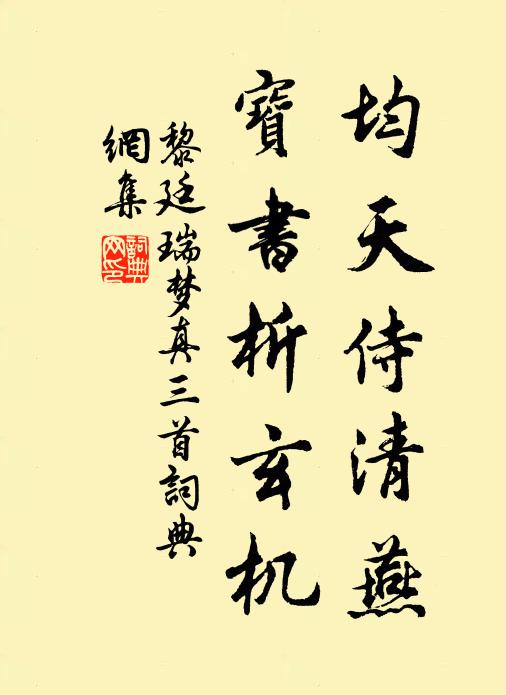 均天侍清燕
寶書析玄机
黎廷瑞梦真三首詞典
網集
詞典
网印